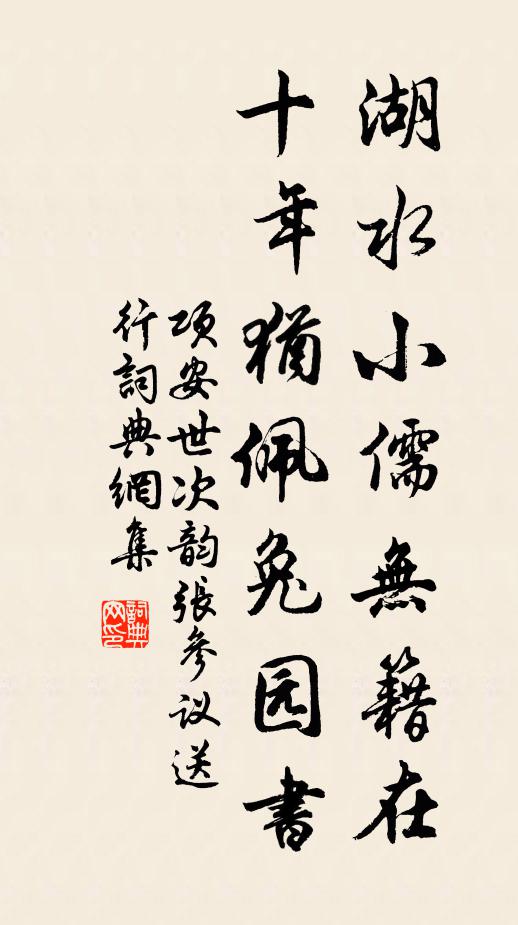 湖水小儒無籍在
十年猶佩兔园書
项安世次韵張參议送
行詞典網集
詞典网印